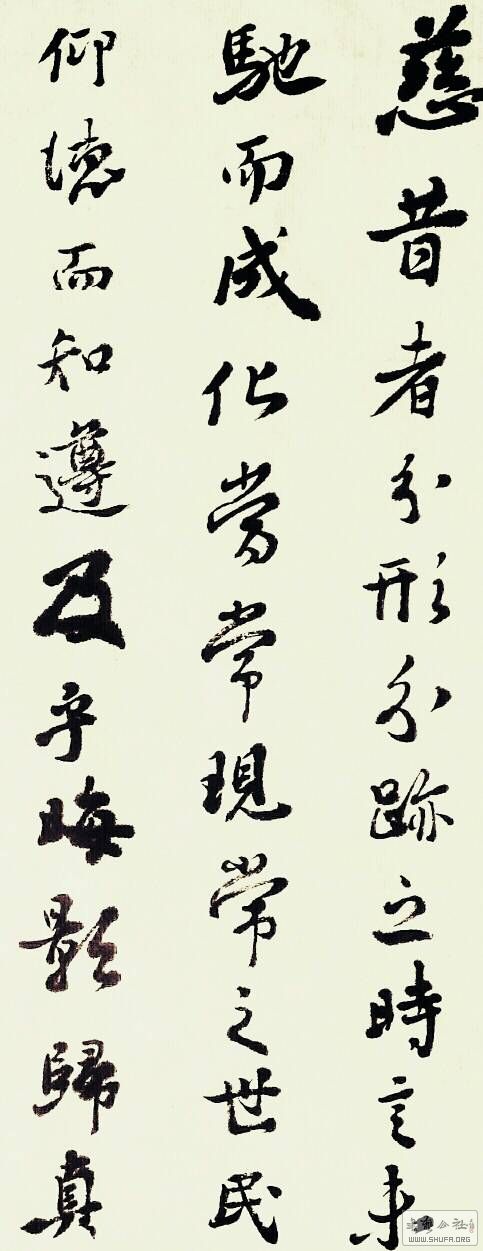 慈昔者分形分跡之時言未
馳而成化當常現常之世民
仰德而知遵及乎晦影歸真
WWW.SHUFA.ORG